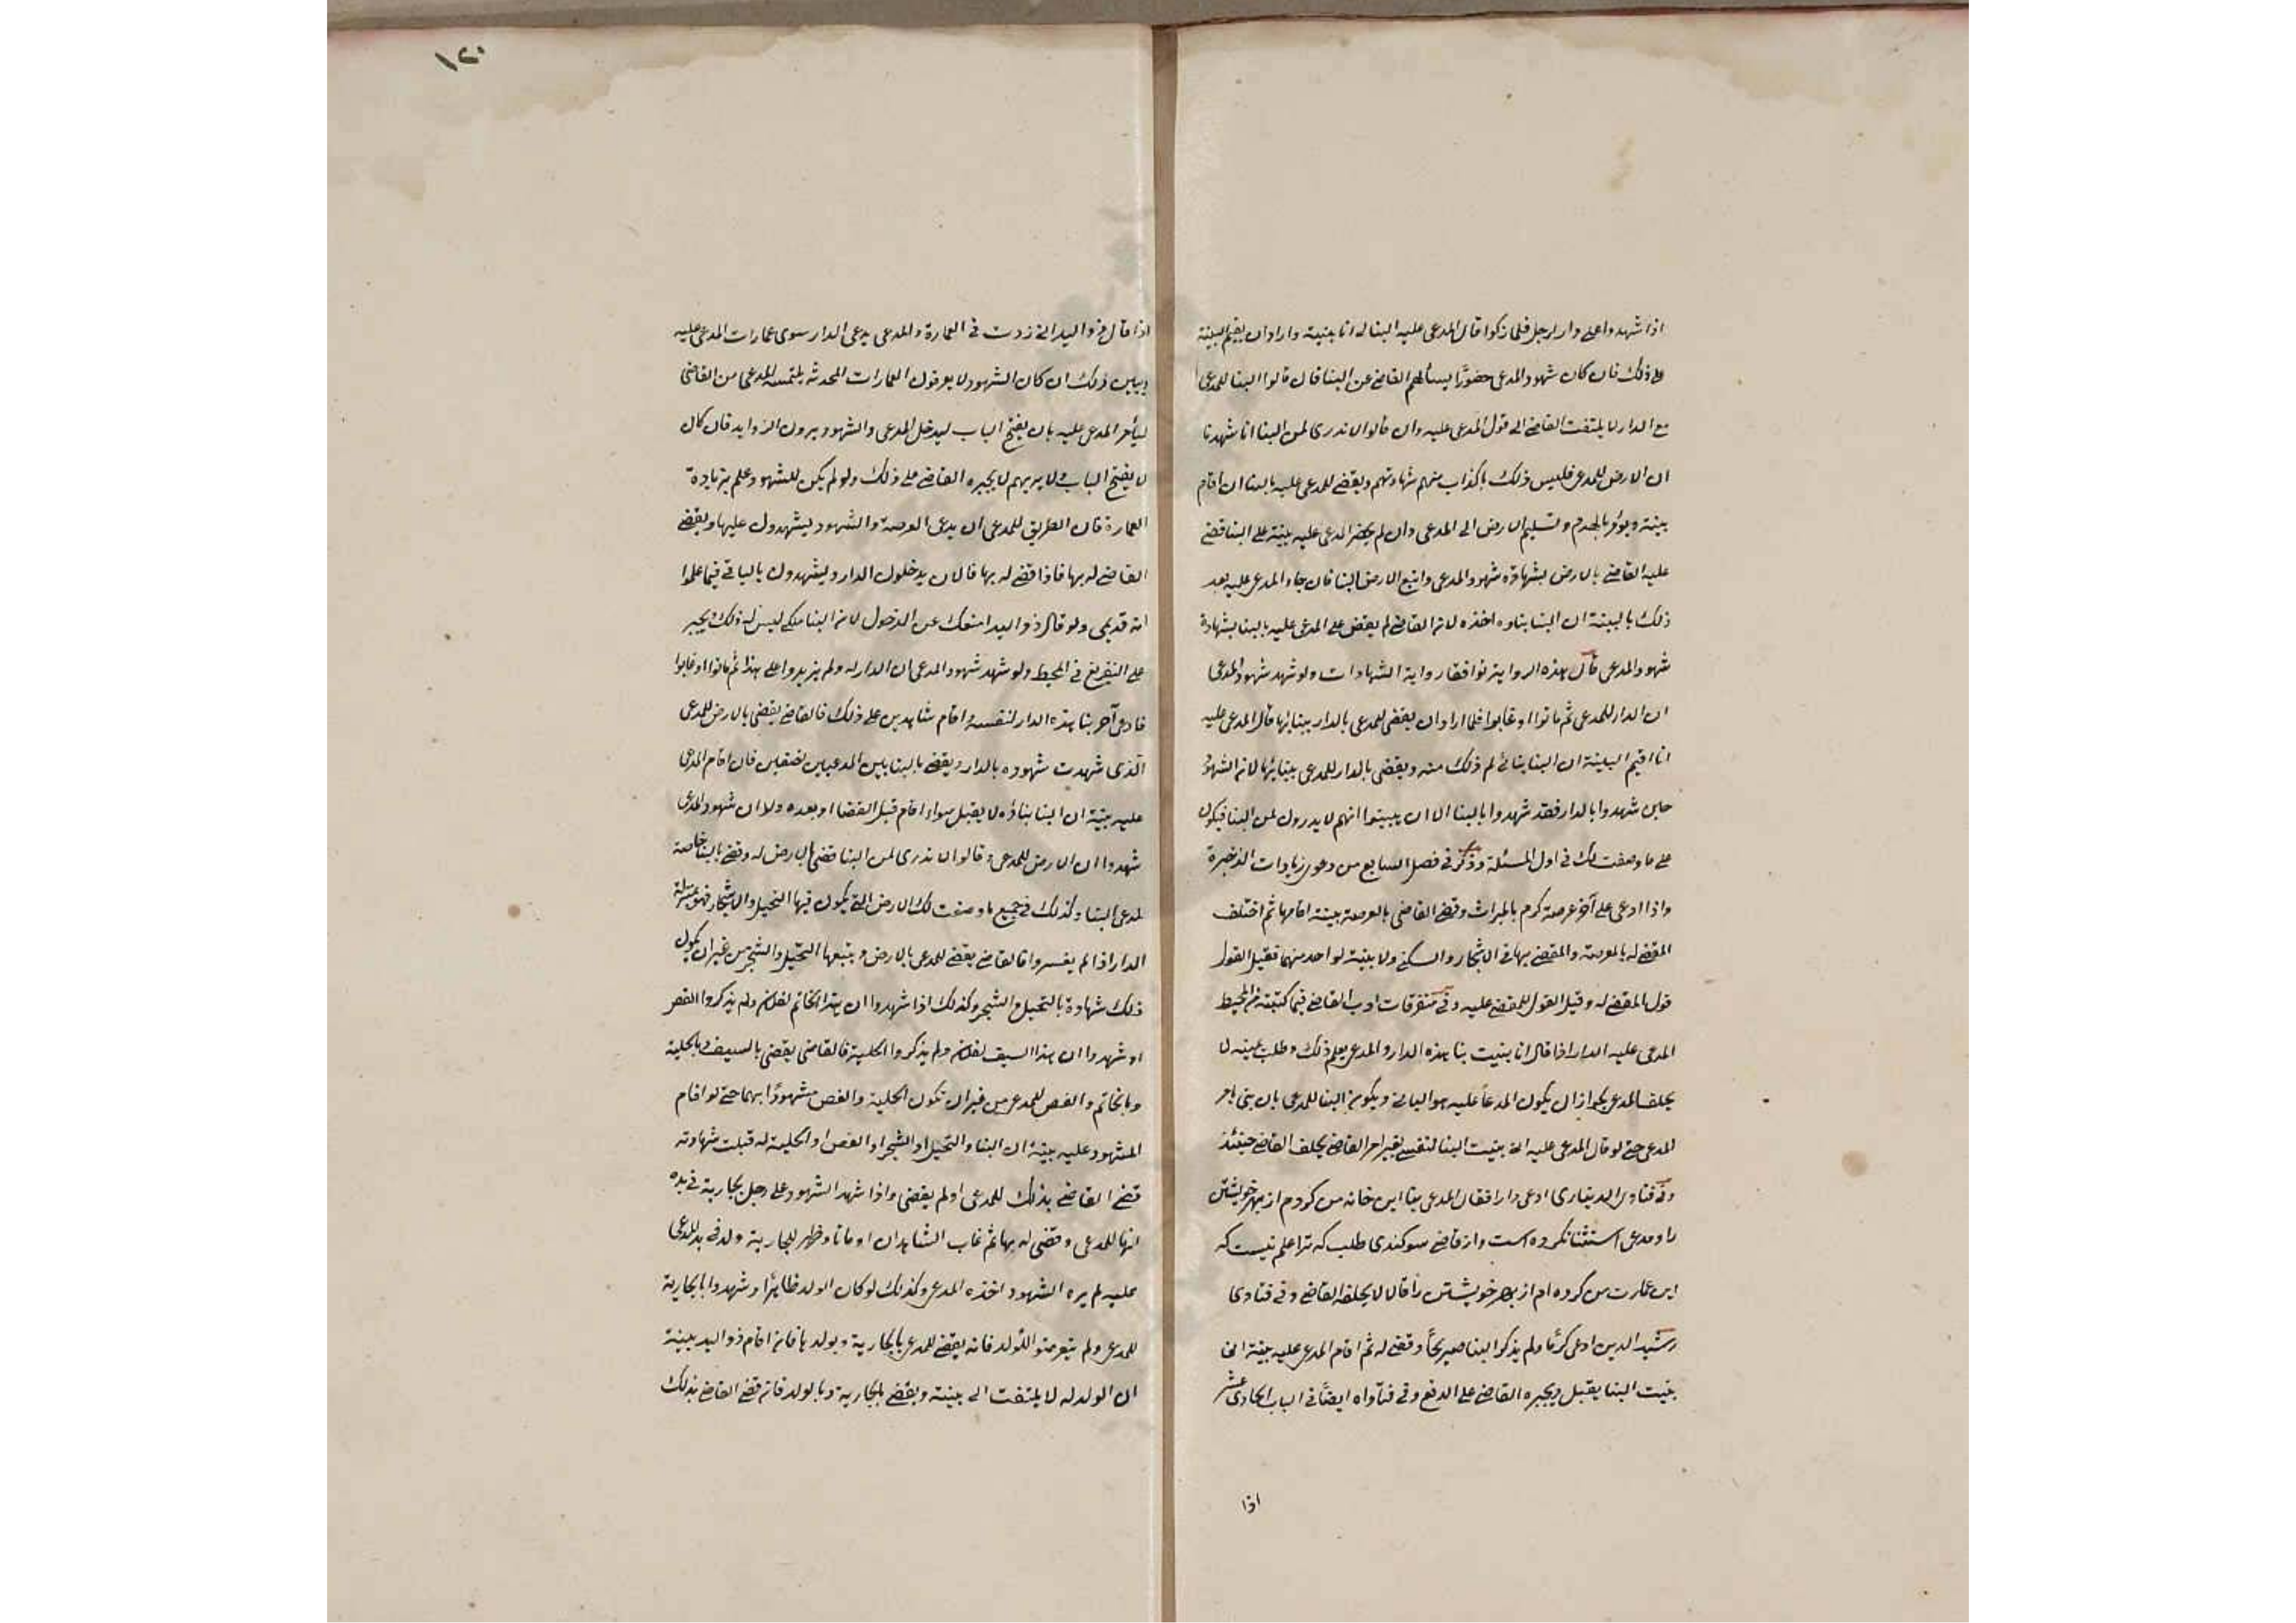 اذا شهدوا على دار لرجل فلما زكوا قال المدعى عليه البنا له انا بنيته واراد ان يقيم البينة
على ذلك فان كان شهود المدعى حضورًا يسألهم القاضى عن البنا فان قالوا البنا للمدعى
مع الدار لا يلتفت القاضى الى قول المدعى عليه وان قالوا لا ندرى لمن البنا انا شهدنا
ان الارض للمدعى فليس ذلك باكذاب منهم شهادتهم ويقضى للمدعى عليه بالبنا ان اقام
بينته ويؤمر بالهدم وتسليم الارض الى المدعى وان لم يحضر المدعى عليه بينة على البنا قضى
عليه القاضى بالارض بشهادة شهود المدعى واتبع الارض البنا فان جاء المدعى عليه بعد
ذلك بالبينة ان البنا بناوه اخذه لان القاضى لم يقض على المدعى عليه بالبنا بشهادة
شهود المدعى قال هذه الرواية توافق رواية الشهادات ولو شهد شهود المدعى
ان الدار للمدعى ثم ماتوا او غابوا فلما اراد ان يقضى للمدعى بالدار ببنائها قال المدعى عليه
انا اقيم البينة ان البنا بنائى لم ذلك منه ويقضى بالدار للمدعى ببنائها لان الشهود
حين شهدوا بالدار فقد شهدوا بالبنا الا ان يبينوا انهم لا يدرون لمن البنا فيكون
على ما وصفت لك فى اول المسئلة وذكر فى فصل السابع من دعوى زيادات الذخيرة
واذا ادعى على آخر عرصة كرم بالميراث وقضى القاضى بالعرصة ببينة اقامها ثم اختلف
المقضى له بالعرصة والمقضى بها فى الاشجار والسكنى ولا بينة لواحد منهما فقيل القول
قول المقضى له وقيل القول للمقضى عليه وفى متفرقات ادب القاضى فيما كتبته من المحيط
المدعى عليه الدار اذا قال انا بنيت بنا هذه الدار والمدعى يعلم ذلك وطلب يمينه لا
يحلف المدعى بجواز ان يكون المدعا عليه هو البانى ويكون البنا للمدعى بان بنى بامر
المدعى حتى لو قال المدعى عليه انى بنيت البنا لنفسى بغير امر القاضى يحلف القاضى حينئذ
وفى فتاوى الدينارى ادعى دارا فقال المدعى بنا اين خانه من كردم از بهر خويشتن
را ومدعى استثنا نكرده است واز قاضى سوكندى طلب كه ترا علم نيست كه
اين عمارت من كرده ام از بهر خويشتن را قالا لا يحلفه القاضى وفى فتاوى
رشيد الدين ادعى كرمًا ولم يذكر البنا صريحًا وقضى له ثم اقام المدعى عليه بينة انى
بنيت البنا يقبل ويجبره القاضى على الدفع وفى فتاواه ايضًا فى الباب الحادى عشر
اذا
اذا قال ذو اليد انى زدت فى العمارة والمدعى يدعى الدار سوى عمارات المدعى عليه
وبين ذلك ان كان الشهود لا يعرفون العمارات المحدثة يلتمس المدعى من القاضى
ليأمر المدعى عليه بان يفتح الباب ليدخل المدعى والشهود ويرون الزوايد فان كان
لا يفتح الباب ولا يريهم لا يجبره القاضى على ذلك ولو لم يكن للشهود علم بزيادة
العمارة فان الطريق للمدعى ان يدعى العرصة والشهود يشهدون عليها ويقضى
القاضى له بها فاذا قضى له بها فالان يدخلون الدار ويشهدون بالباقى فيما علموا
انه قديمى ولو قال ذو اليد امنعك عن الدخول لان البنا ملكى ليس له ذلك ويجبر
على التفريغ فى المحيط ولو شهد شهود المدعى ان الدار له ولم يزيدوا على هذا ثم ماتوا او غابوا
فادعى آخر بنا هذه الدار لنفسه واقام شاهدين على ذلك فالقاضى يقضى بالارض للمدعى
الذى شهدت شهوده بالدار ويقضى بالبنا بين المدعيين نصفين فان اقام المدعى
عليه بينة ان البنا بناؤه لا يقبل سواء اقام قبل القضا او بعده ولا ان شهود المدعى
شهدوا ان الارض للمدعى وقالوا لا ندرى لمن البنا قضى بالارض له وقضى بالبنا خاصة
لمدعى البنا وكذلك فى جميع ما وصفت لك الارض التى يكون فيها النخيل والاشجار فهو بمنزلة
الدار اذا لم يفسروا فالقاضى يقضى للمدعى بالارض ويتبعها النخيل والشجر من غير ان يكون
ذلك شهادة بالنخيل والشجر وكذلك اذا شهدوا ان هذا الخاتم لفلان ولم يذكروا الفص
او شهدوا ان هذا السيف لفلان ولم يذكروا الحلية فالقاضى يقضى بالسيف وبالحلية
وبالخاتم والفص للمدعى من غير ان تكون الحلية والفص مشهودًا بهما حتى لو اقام
المشهود عليه بينة ان البنا والنخيل او الشجر او الفص او الحلية له قبلت شهادته
قضى القاضى بذلك للمدعى او لم يقض واذا شهد الشهود على رجل بجارية فى يده
انها للمدعى وقضى له بها ثم غاب الشاهدان او ماتا وظهر للجارية ولد فى يد المدعى
عليه لم يره الشهود اخذه المدعى وكذلك لو كان الولد ظاهرًا وشهدوا بالجارية
للمدعى ولم يتعرضوا للولد فانه يقضى للمدعى بالجارية وبولدها فان اقام ذو اليد بينة
ان الولد له لا يلتفت الى بينته ويقضى بالجارية وبالولد فان قضى القاضى بذلك